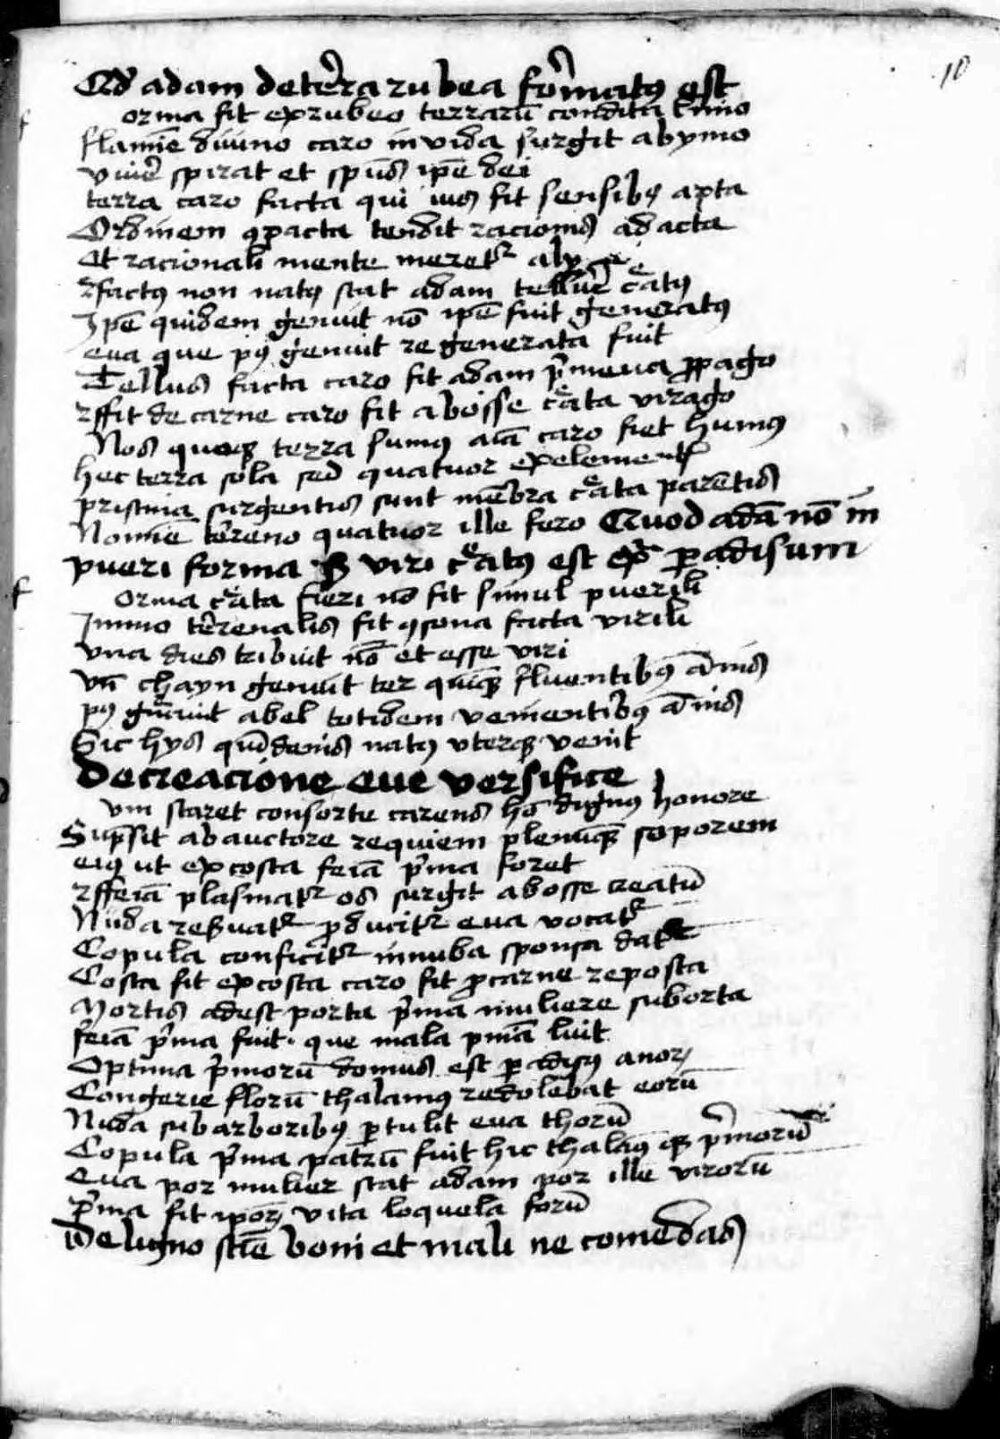 10
Qd adam de terra rubea formatus est
orma fit ex rubeo terrarum condita limo
flamine diuino caro inuida surgit abymo
viuere spirat et spūs ipē dei
terra caro facta qui ius fit sensibꝫ apta
Ordinem ꝯpacta tendit racionis adacta
Et racionali mente meretr
rfactꝰ non natꝰ stat adam tellure creatꝰ
Ipē quidem genuit nō ipē fuit generatꝰ
eua que pꝰ genuit regenerata fuit
Tellus facta caro fit adam primeua ꝓpago
rffit de carne caro fit ab osse creata virago
Nos quoqꝫ terra sumꝰ caro fiet humꝰ
hec terra sola sed quatuor ex elementis
pristina surgentis sunt mēbra creata parētis
Nomē terreno quatuor ille fero Quod adā nō in
pueri forma sꝫ viri creatꝰ est paradisum
f
orma creata fieri nō fit simul puerili
Immo terrenalis fit ꝑsona facta virili
vna dies tribuit nō et esse viri
vn chayn genuit ter quīqꝫ fluentibꝰ annis
pꝰ genuit abel totidem venientibꝰ annis
Sic hys quīdenis natꝰ vterqꝫ venit
De creacione eue versifice
vm staret consorte carens hō dignus honore
Supsit ab auctore requiem plenūqꝫ soporem
eiꝰ ut ex costa feīa pⁱma foret
rffeīa plasmatur os surgit ab osse creatū
Nuda reseruatur ꝓducitur eua vocatur
Copula conficitur innuba sponsa datur
Costa fit ex costa caro fit ꝓ carne reposta
Mortis adest porta pⁱma muliere suborta
feīa pⁱma fuit · que mala pmā luit
Optima pⁱmorū domus est paradisꝰ
Congerie florū thalamꝰ redolebat eorū
Nuda sub arboribꝰ ꝑtulit eua thorū
Copula pⁱma patrū fuit hic thalamꝰ qꝫ pⁱmorū
Eua por mulier stat adam por ille virorū
pⁱma fit ipoꝝ vita loquela forū
De ligno sciē boni et mali ne comedas